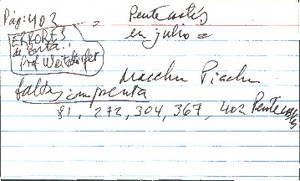 Pág: 402 = Pentecostés
en julio =
ERRORES
de Imprenta..
Prof Weitzdörfer
Macchu Picchu
faltas imprenta
81, 272, 304, 367, 402 Pentecostés